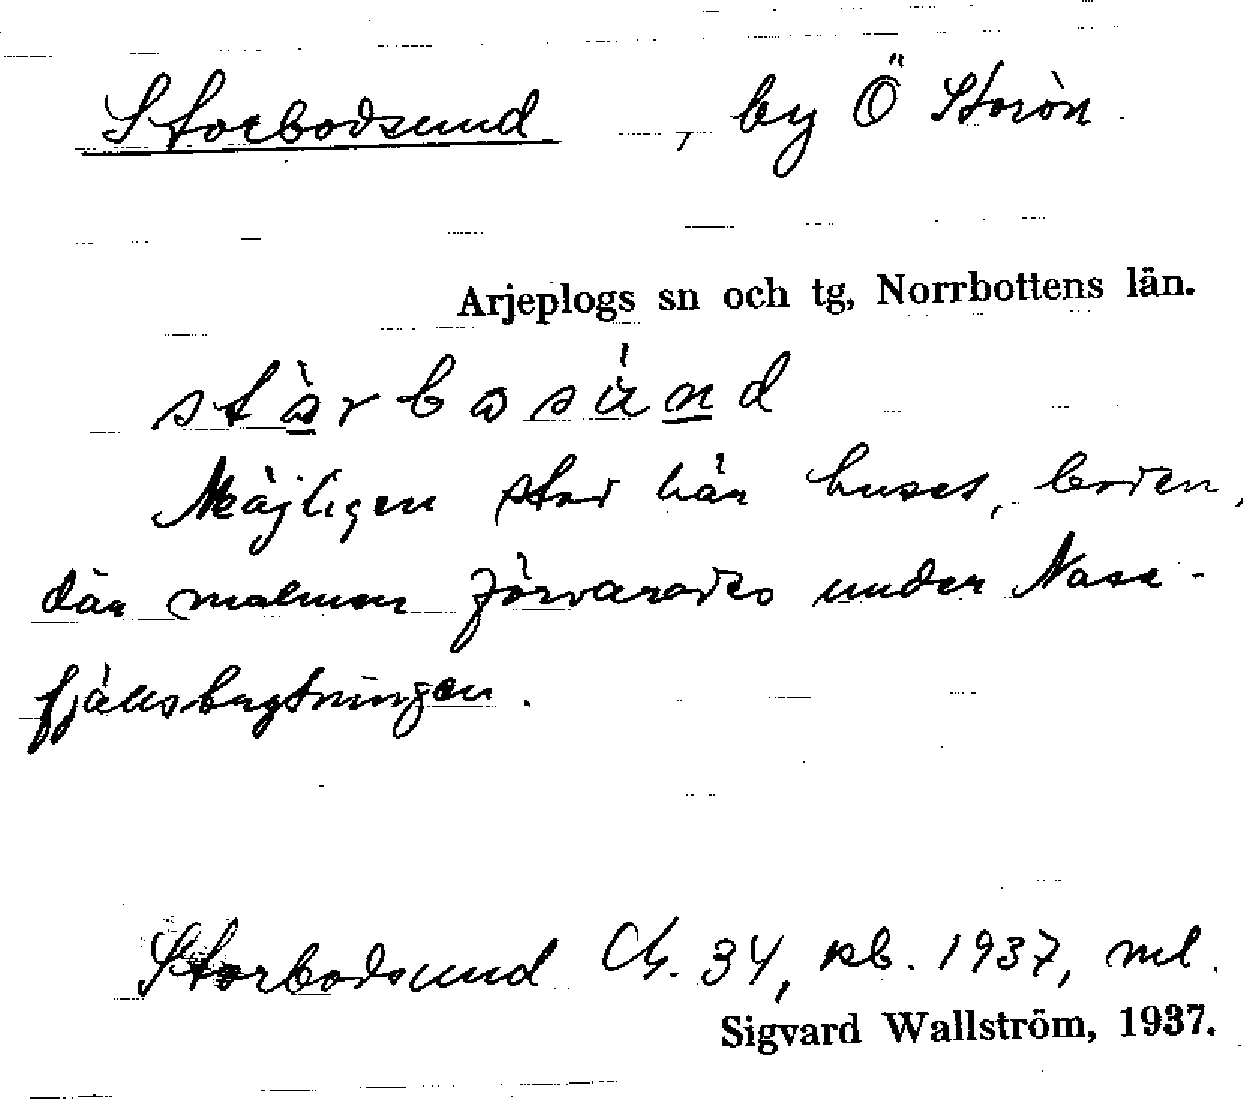 Storbodsund, by Ö Storön
Arjeplogs sn och tg, Norrbottens län.
Möjligen stod här huset, boden,
där malmen förvarades under Nasa-
fjällsbrytningen.
Storbodsund Ch. 34, kb. 1937, ml.
Sigvard Wallström, 1937.